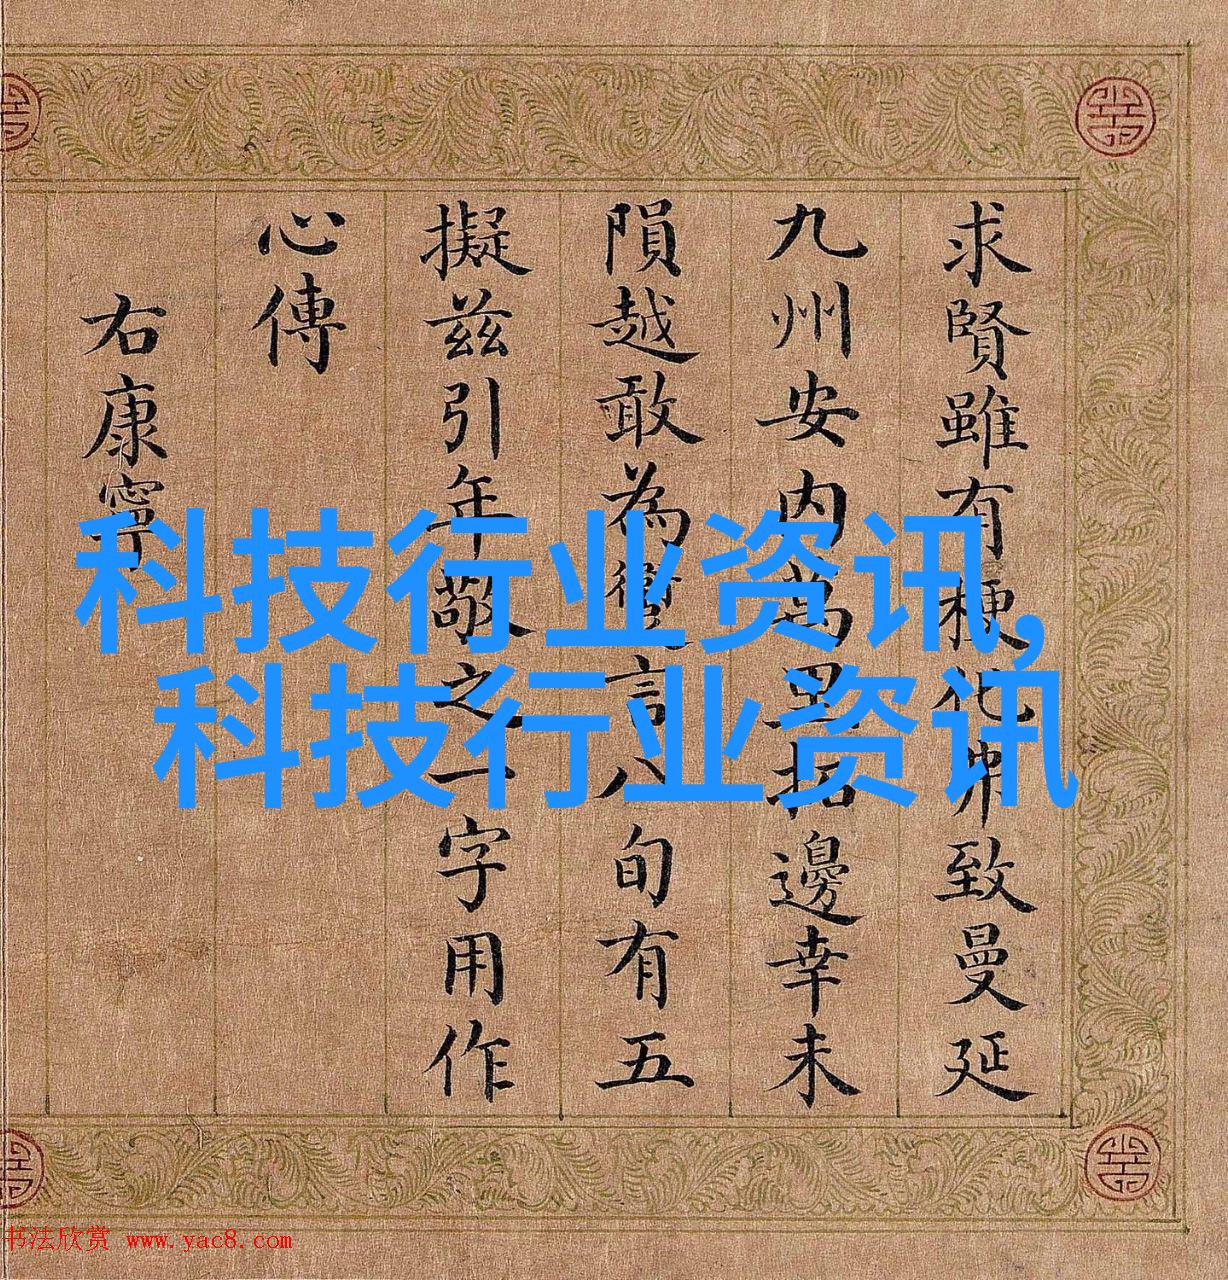 求賢雖有梗化致曼延
九州安内萬里拓邊幸未
隕越敢為言八旬有五
擬兹引年敬之一字用作
心傳
右康寧
科技行业资讯,
科技行业资讯
书法欣赏 www.yac8.com